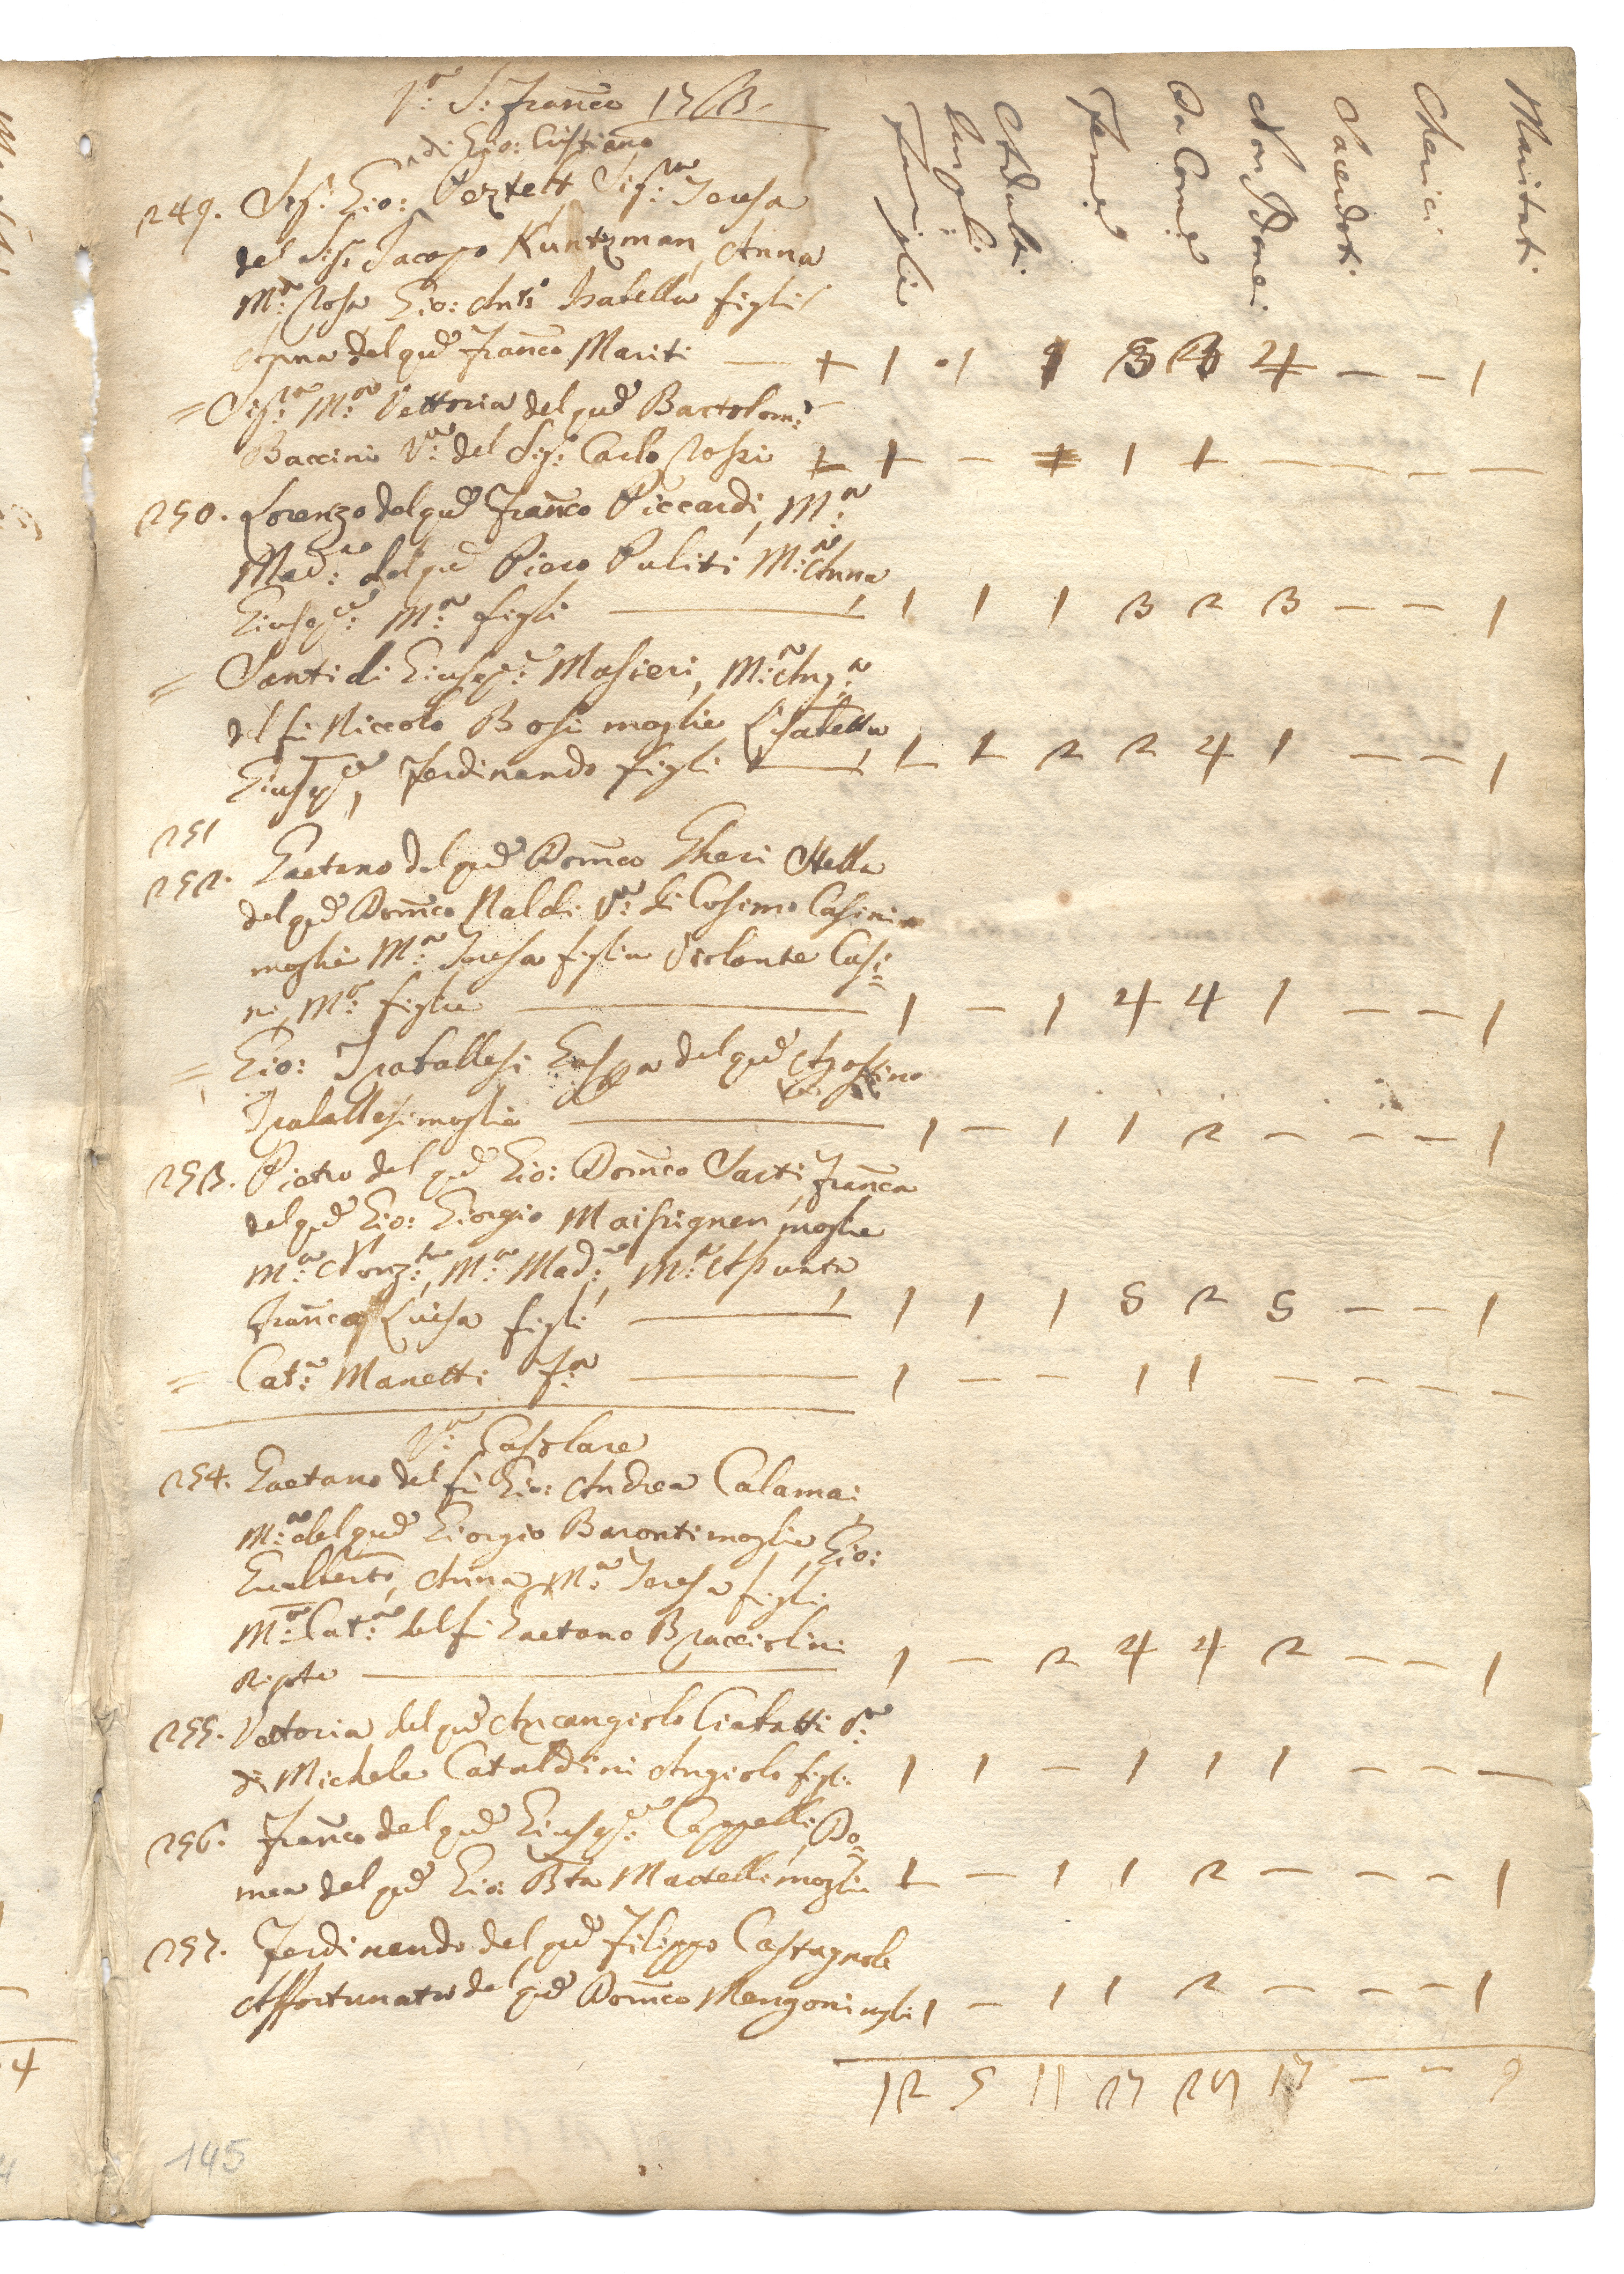 V.a S. Fran.co 1763
di Gio: Cristiano
Famiglie Fanciulli Adulti Femine Da Com.e Non Com.i Sacerdoti Cherici Maritati
249. Sig.r Gio: Peztelt Sig.ra Teresa
del Sig. Jacopo Kuntzman, Anna
M.a Rosa Gio: Ant.o Isabella figli
Anna del qu.d Fran.co Mariti — + 1 1 1 3 3 4 — — 1
= Sig.ra M.a Vettoria del qu.d Bartolom.o
Baccini V.a del Sig. Carlo Rossi 1 1 — + 1 1 — — — —
250. Lorenzo del qu.d Fran.co Piccardi, M.a
Mad.na del qu.d Piero Puliti M.a Anna
Giusep.e M.a figli — 1 1 1 3 2 3 — — 1
= Santi di Giusep.e Masieri, M.a Ang.a
del fu Niccolo Bosi moglie Lisabetta
Giusep.e, Ferdinando figli — 1 1 2 2 4 1 — — 1
251
252. Gaetano del qu.d Dom.co Gheri Stella
del qu.d Dom.co Naldi V.a di Cosimo Casini
moglie M.a Teresa figlia Violante Casi=
ni M.a figlie — 1 — 1 4 4 1 — — 1
= Gio: Traballesi Gaspa del qu.d Agostino
Traballesi moglie — 1 — 1 1 2 — — — 1
253. Pietro del qu.d Gio: Dom.co Sarti, Fran.ca
del qu.d Gio: Giorgio Maisrignen moglie
M.a Nonz.ta, M.a Mad.na, M.a Assunta,
Fran.ca, Luisa figli — 1 1 1 5 2 5 — — 1
= Cat.a Manetti F.a — 1 — — 1 1 — — — —
V.a Casolare
254. Gaetano del fu Gio: Andrea Calamai
M.a del qu.d Giorgio Baronti moglie, Gio:
Gualberto, Anna M.a Teresa figli
M.a Cat.a del fu Gaetano Bracciolini
Nipote — 1 — 2 4 4 2 — — 1
255. Vettoria del qu.d Arcangiolo Ciabatti V.a
di Michele Cataldini Angiolo figli: 1 1 — 1 1 1 — — —
256. Fran.co del qu.d Giusep.e Cappelli, Do=
mca del qu.d Gio: Bta Martelli moglie 1 — 1 1 2 — — — 1
257. Ferdinando del qu.d Filippo Castagnoli
Affortunata del qu.d Dom.co Mengoni mgli 1 — 1 1 2 — — — 1
12 5 11 27 29 17 — — 9
145